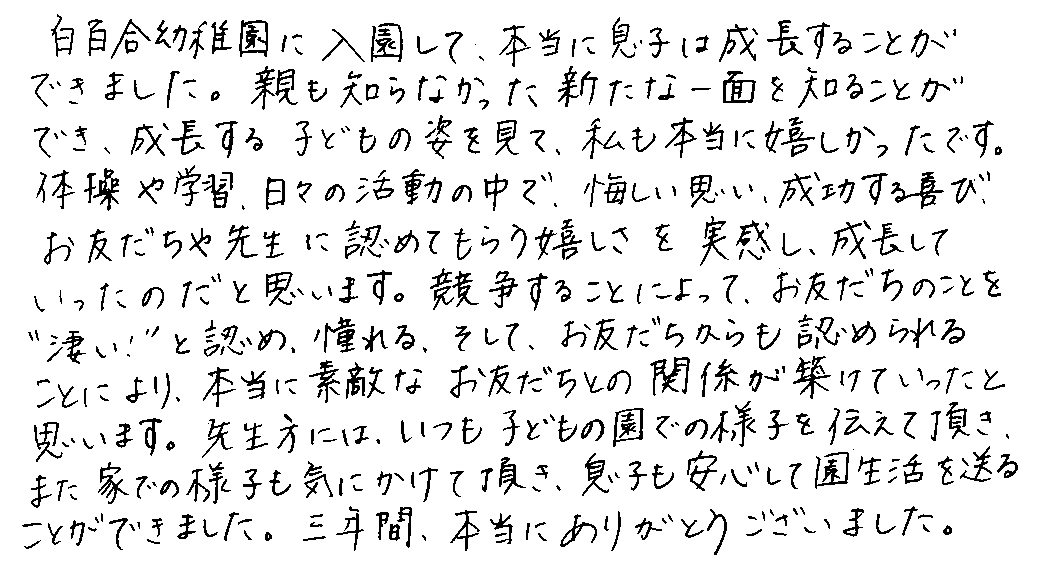 白百合幼稚園に入園して、本当に息子は成長することが
できました。親も知らなかった新たな一面を知ることが
でき、成長する子どもの姿を見て、私も本当に嬉しかったです。
体操や学習、日々の活動の中で、悔しい思い、成功する喜び、
お友だちや先生に認めてもらう嬉しさを実感し、成長して
いったのだと思います。競争することによって、お友だちのことを
“凄い!”と認め、憧れる、そして、お友だちからも認められる
ことにより、本当に素敵なお友だちとの関係が築けていったと
思います。先生方には、いつも子どもの園での様子を伝えて頂き、
また家での様子も気にかけて頂き、息子も安心して園生活を送る
ことができました。三年間、本当にありがとうございました。